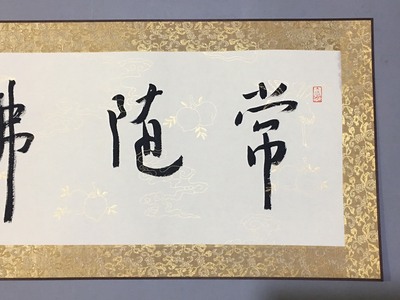 常随佛